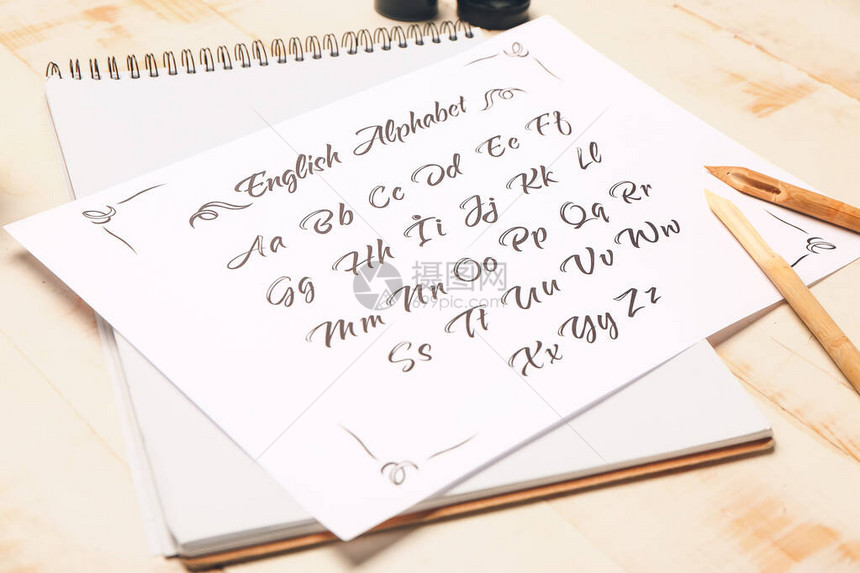 English Alphabet
Aa Bb Cc Dd Ee Ff
Gg Hh İi Jj Kk Ll
Mm Nn Oo Pp Qq Rr
Ss Tt Uu Vv Ww
Xx Yy Zz
摄图网
699pic.com